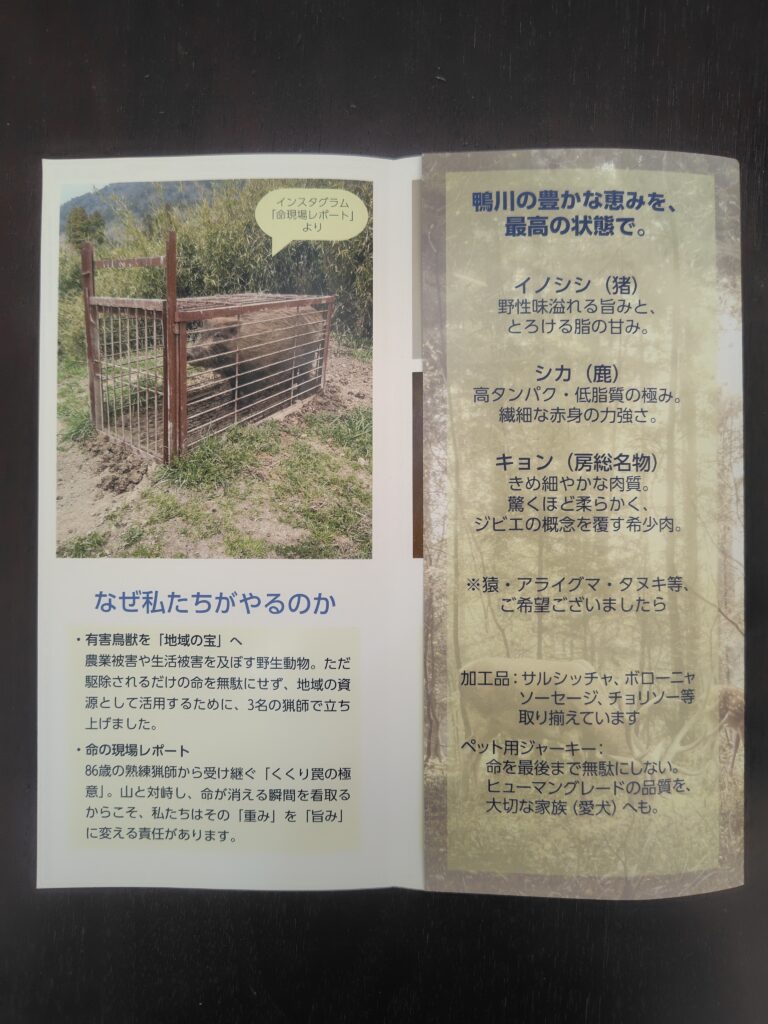 インスタグラム
「命現場レポート」
より
なぜ私たちがやるのか
・有害鳥獣を「地域の宝」へ
農業被害や生活被害を及ぼす野生動物。ただ
駆除されるだけの命を無駄にせず、地域の資
源として活用するために、3名の猟師で立ち
上げました。
・命の現場レポート
86歳の熟練猟師から受け継ぐ「くくり罠の極
意」。山と対峙し、命が消える瞬間を看取る
からこそ、私たちはその「重み」を「旨み」
に変える責任があります。
鴨川の豊かな恵みを、
最高の状態で。
イノシシ（猪）
野性味溢れる旨みと、
とろける脂の甘み。
シカ（鹿）
高タンパク・低脂質の極み。
繊細な赤身の力強さ。
キョン（房総名物）
きめ細やかな肉質。
驚くほど柔らかく、
ジビエの概念を覆す希少肉。
※猿・アライグマ・タヌキ等、
ご希望ございましたら
加工品：サルシッチャ、ボローニャ
ソーセージ、チョリソー等
取り揃えています
ペット用ジャーキー：
命を最後まで無駄にしない。
ヒューマングレードの品質を、
大切な家族（愛犬）へも。